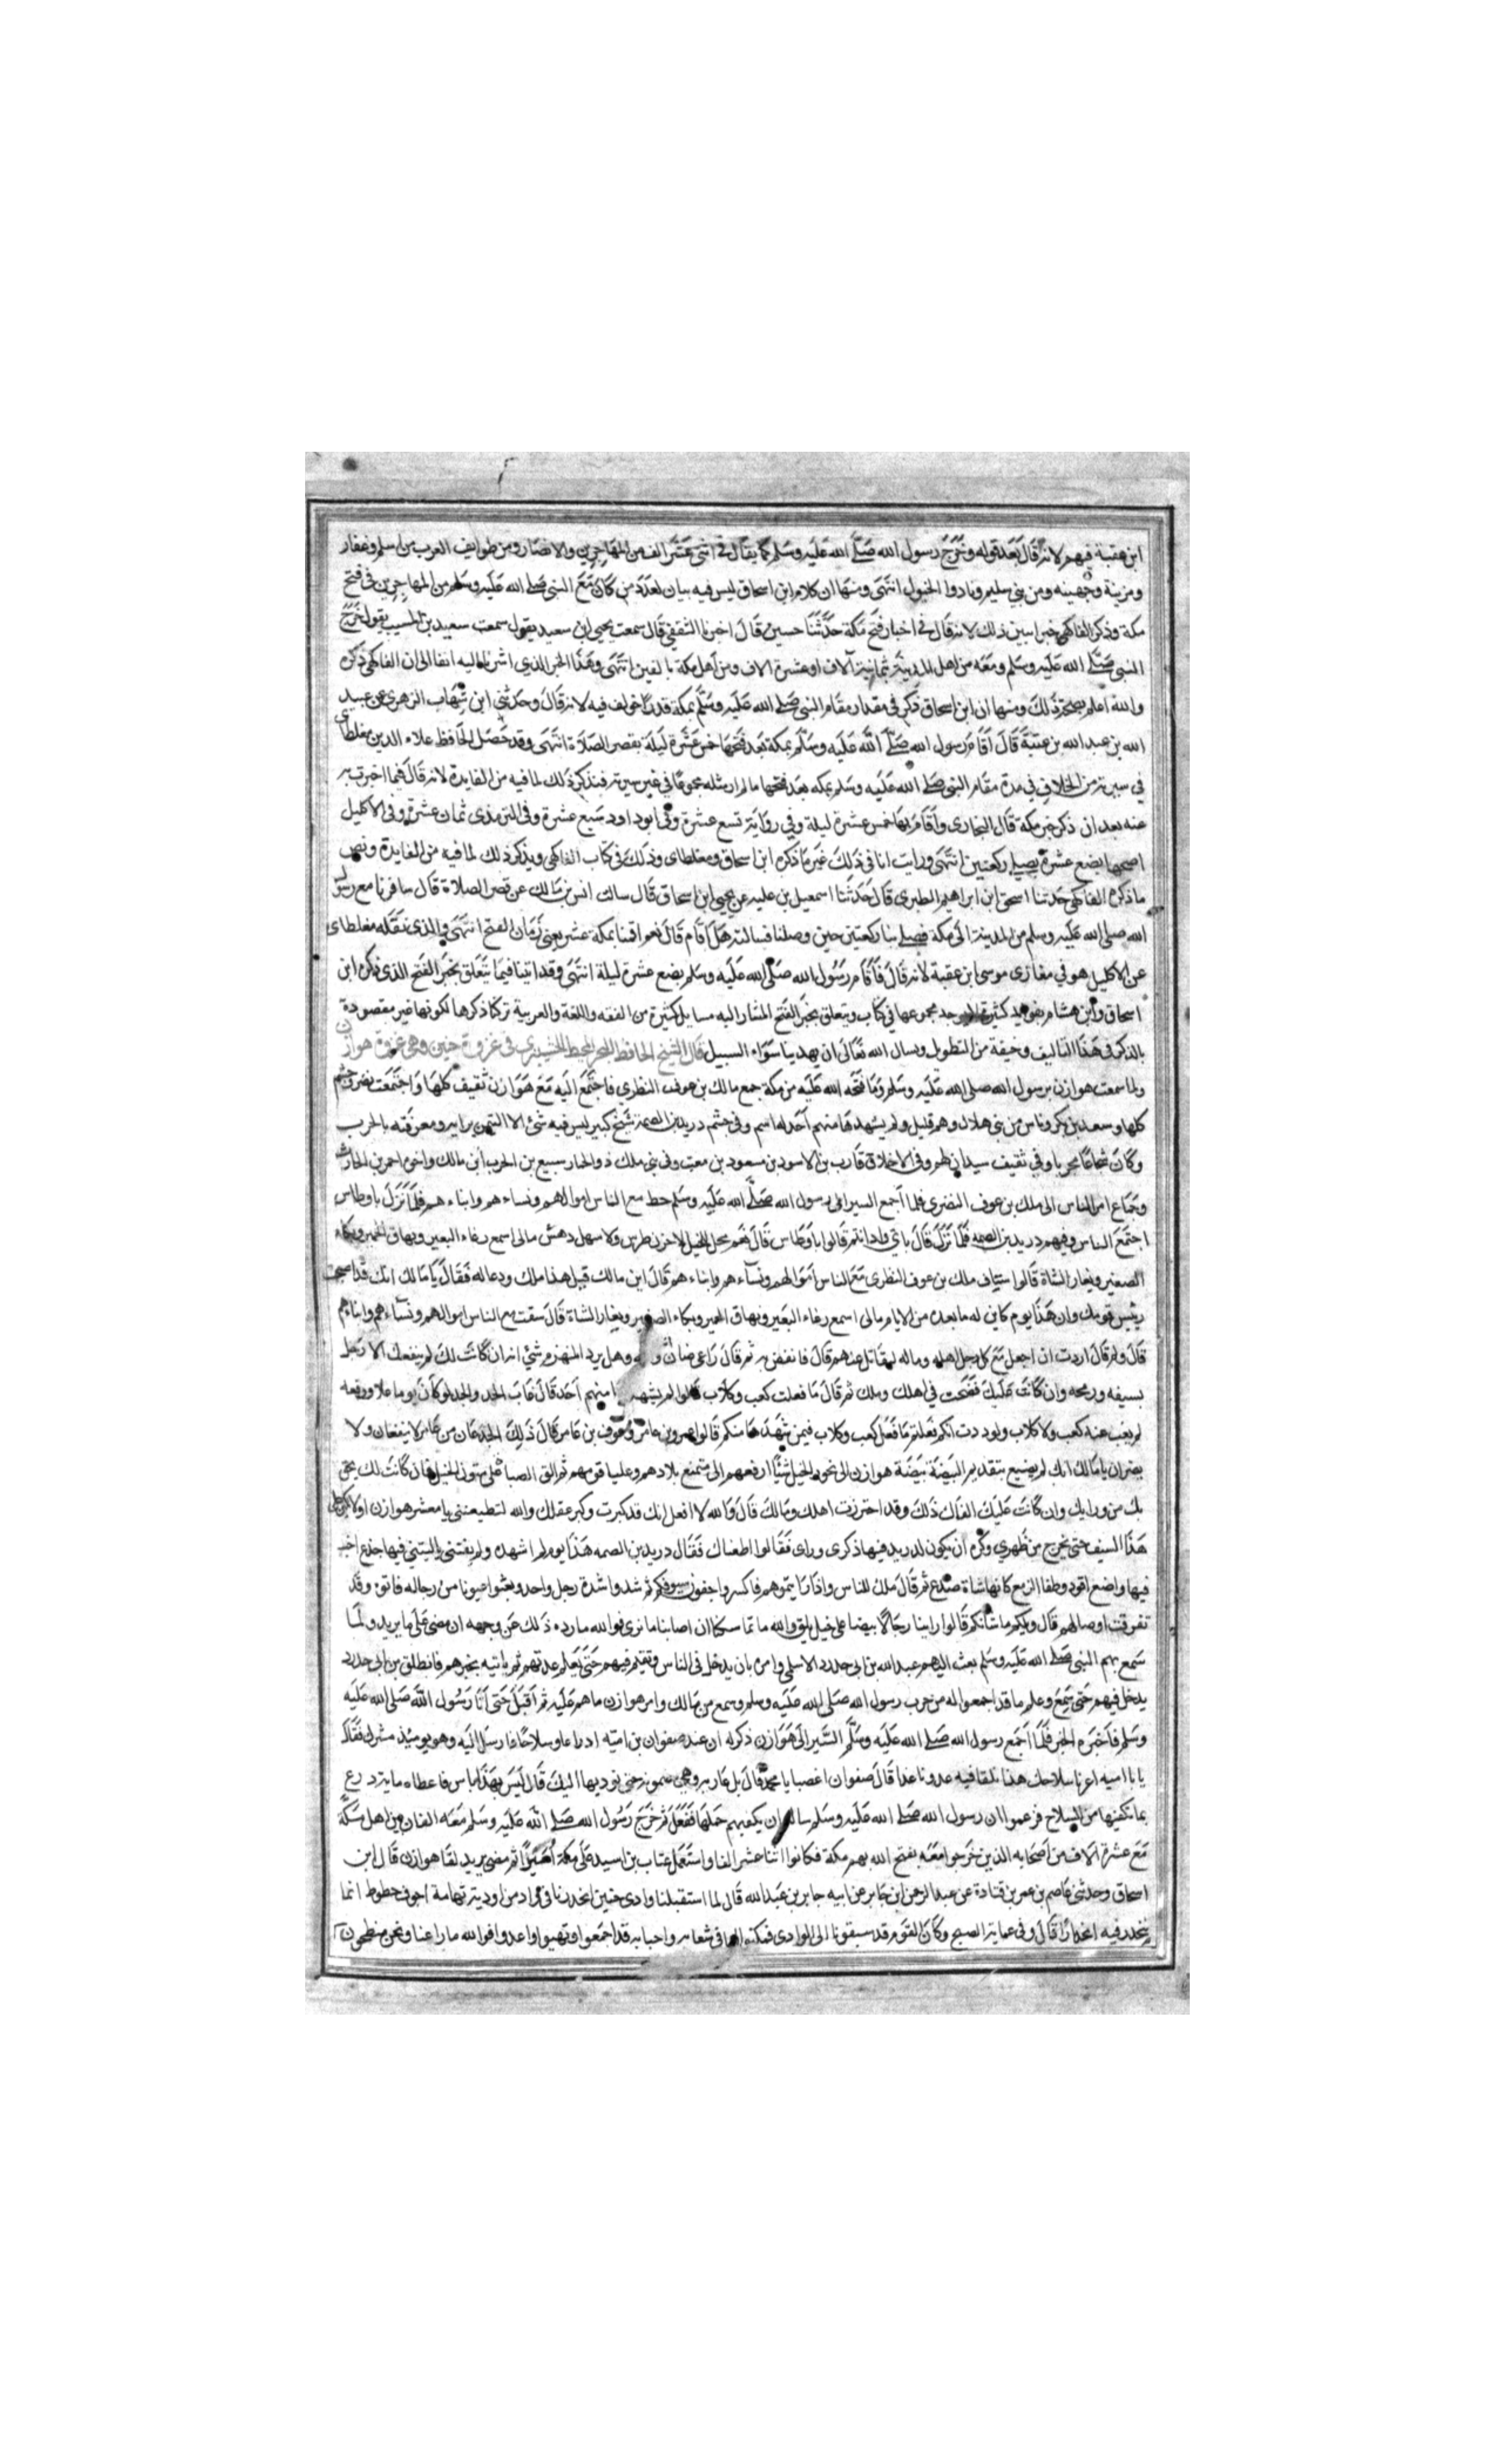 ابن عقبة فيهم لانه قال بعد قوله وخرج رسول الله صلى الله عليه وسلم كما يقال في اثنى عشر الف من المهاجرين والانصار ومن طوايف العرب من اسلم وغفار
ومزينة وجهينه ومن بني سليم وقادوا الخيول انتهى ومنها ان كلام ابن اسحاق ليس فيه بيان لعدد من كان مع النبي صلى الله عليه وسلم من المهاجرين في فتح
مكة وذكر الفاكهي خبرا يبين ذلك لانه قال في اخبار فتح مكة حدثنا حسين قال اخبرنا الثقفي قال سمعت يحيى ابن سعيد يقول سمعت سعيد بن المسيب يقول خرج
النبي صلى الله عليه وسلم ومعه من اهل المدينة بثمانية آلاف او عشرة الاف ومن اهل مكة بالفين انتهى وهذا الخبر الذي اشرنا اليه انفا الى ان الفاكهي ذكره
والله اعلم بصحة ذلك ومنها ان ابن اسحاق ذكر في مقدار مقام النبي صلى الله عليه وسلم بمكة قدرا خولف فيه لانه قال وحدثني ابن شهاب الزهري عن عبيد
الله بن عبد الله بن عتبة قال اقام رسول الله صلى الله عليه وسلم بمكة بعد فتحها خمس عشرة ليلة يقصر الصلاة انتهى وقد حصل الحافظ علاء الدين مغلطاى
في سيرته من الخلاف في مدة مقام النبي صلى الله عليه وسلم بمكه بعد فتحها ما لم ار مثله مجموعا في غير سيرته فنذكر ذلك لما فيه من الفايدة لانه قال فيما اخبرت به
عنه بعد ان ذكر خبر مكة قال البخاري واقام بها خمس عشرة ليلة وفي رواية تسع عشرة وفي ابو داود سبع عشرة وفي الترمذى ثمان عشرة وفي الاكليل
اصحها بضع عشرة يصلي ركعتين انتهى ورايت انا في ذلك غير ما ذكره ابن اسحاق ومغلطاى وذلك في كتاب الفاكهي ويذكر ذلك لما فيه من الفايدة ونص
ما ذكره الفاكهي حدثنا اسحق ابن ابراهيم الطبرى قال حدثنا اسمعيل بن عليه عن يحيى ابن اسحاق قال سالت انس بن مالك عن قصر الصلاة قال سافرنا مع رسول
الله صلى الله عليه وسلم من المدينة الى مكة فصلى بنا ركعتين حين وصلنا فسالته هل اقام قال نعم اقمنا بمكة عشر يعني زمان الفتح انتهى والذى نقله مغلطاى
عن الاكليل هو في مغازى موسى ابن عقبة لانه قال فاقام رسول الله صلى الله عليه وسلم بضع عشرة ليلة انتهى وقد اتينا فيما يتعلق بخبر الفتح الذى ذكره ابن
اسحاق وابن هشام بفوايد كثيرة لا يوجد مجموعها في كتاب ويتعلق بخبر الفتح المشار اليه مسايل كثيرة من الفقه واللغة والعربية تركنا ذكرها لكونها غير مقصودة
بالذكر في هذا التاليف وخيفة من التطويل ونسال الله تعالى ان يهدينا سواء السبيل قال الشيخ الحافظ في غزوة حنين وهي غزوة هوازن
ولما سمعت هوازن برسول الله صلى الله عليه وسلم وما فتحه الله عليه من مكة جمع مالك بن عوف النظري فاجتمع اليه مع هوازن ثقيف كلها واجتمعت نصر وجشم
كلها وسعد بن بكر وناس من بني هلال وهم قليل ولم يشهدها منهم احد له اسم وفي جشم دريد بن الصمة شيخ كبير ليس فيه شئ الا التيمن برايه ومعرفته بالحرب
وكان شجاعا مجربا وفي ثقيف سيدان لهم وفي الاحلاف قارب بن الاسود بن مسعود بن معتب وفي بني ملك ذو الخمار سبيع بن الحرب ابن مالك واخوه احمر بن الحارث
وجماع امر الناس الى ملك بن عوف النضرى فلما اجمع السير الى رسول الله صلى الله عليه وسلم حط مع الناس اموالهم ونساءهم وابناءهم فلما نزل باوطاس
اجتمع الناس وفيهم دريد بن الصمه فلما نزل قال باي واد انتم قالوا باوطاس قال نعم مجل الخيل لا حزن ضرس ولا سهل دهش مالى اسمع رغاء البعير ونهاق الحمير وبكاء
الصغير ويعار الشاة قالوا ساق ملك بن عوف النظرى مع الناس اموالهم ونساءهم وابناءهم قال ابن مالك قيل هذا ملك ودعا له فقال يا مالك انك قد اصبحت
رييس قومك وان هذا يوم كاين له ما بعده من الايام مالى اسمع رغاء البعير ونهاق الحمير وبكاء الصغير ويعار الشاة قال سقت مع الناس اموالهم ونساءهم وابناءهم
قال ولم قال اردت ان اجعل مع كل رجل اهله وماله ليقاتل عنهم قال فانقض به ثم قال راعي ضان والله وهل يرد المنهزم شئ انها ان كانت لك لم ينفعك الا رجل
بسيفه ورمحه وان كانت عليك فضحت في اهلك وملك ثم قال ما فعلت كعب وكلاب قالوا لم يشهدها منهم احد قال غاب الحد والجد لو كان يوما علا ورفعه
لم يغب عنه كعب ولا كلاب ولوددت انكم فعلتم ما فعل كعب وكلاب فيمن شهدها منكم قالوا عمرو بن عامر وعوف بن عامر قال ذلك الجذعان من عامر لا ينفعان ولا
يضران يا مالك انك لم تصنع بتقديم البيضة بيضة هوازن الى نحور الخيل شيئا ارفعهم الى متمنع بلادهم وعليا قومهم ثم الق الصبا على متون الخيل فان كانت لك لحق
بك من ورايك وان كانت عليك الفاك ذلك وقد احترزت اهلك ومالك قال والله لا افعل انك قد كبرت وكبر عقلك والله لتطيعنني يا معشر هوازن او لاتكين على
هذا السيف حتى يخرج من ظهري وكره ان يكون لدريد فيها ذكرى وراى فقالوا اطعناك فقال دريد بن الصمه هذا يوم لم اشهده ولم يفتني يا ليتني فيها جذع اخب
فيها واضع اقود وطفا الزمع كانها شاة صدع ثم قال ملك للناس واذا رايتموهم فاكسروا جفون سيوفكم ثم شدوا شدة رجل واحد وبعثوا عيونا من رجاله فاتوه وقد
تفرقت اوصالهم قال ويلكم ما شانكم قالوا راينا رجالا بيضا على خيل بلق والله ما تماسكنا ان اصابنا ما نرى فوالله ما رده ذلك عن وجهه ان مضى على ما يريد ولما
سمع بهم النبي صلى الله عليه وسلم بعث اليهم عبد الله بن ابى حدرد الاسلمى وامره بان يدخل في الناس فيقيم فيهم حتى يعلم علمهم ثم ياتيه بخبرهم فانطلق بن ابى حدرد
يدخل فيهم حتى سمع وعلم ما قد اجمعوا له من حرب رسول الله صلى الله عليه وسلم وسمع من مالك وامر هوازن ما هم عليه ثم اقبل حتى اتا رسول الله صلى الله عليه
وسلم فاخبره الخبر فلما اجمع رسول الله صلى الله عليه وسلم السير الى هوازن ذكر له ان عند صفوان بن اميه ادراعا وسلاحا فارسل اليه وهو يوميذ مشرك فقال
يا با اميه اعرنا سلاحك هذا نلقا فيه عدونا غدا قال صفوان اغصبا يا محمد قال بل عارية وهي مضمونه حتى نوديها اليك قال ليس بهذا باس فاعطاه ماية درع
بما تكفيها من السلاح فزعموا ان رسول الله صلى الله عليه وسلم ساله ان يكفيهم حملها ففعل ثم خرج رسول الله صلى الله عليه وسلم معه الفان من اهل مكة
مع عشرة الاف من اصحابه الذين خرجوا معه يفتح الله بهم مكة فكانوا اثنا عشر الفا واستعمل عتاب بن اسيد على مكة اميرا ثم مضى يريد لقا هوازن قال ابن
اسحاق وحدثني عاصم بن عمر بن قتادة عن عبد الرحمن ابن جابر عن ابيه جابر بن عبد الله قال لما استقبلنا وادى حنين انحدرنا في واد من اودية تهامة اجوف حطوط انما
ينحدر فيه انحدارا قال وفي عماية الصبح وكان القوم قد سبقونا الى الوادى فكمنوا لنا في شعابه واحنايه قد اجمعوا وتهيوا واعدوا فوالله ما راعنا ونحن منحطون